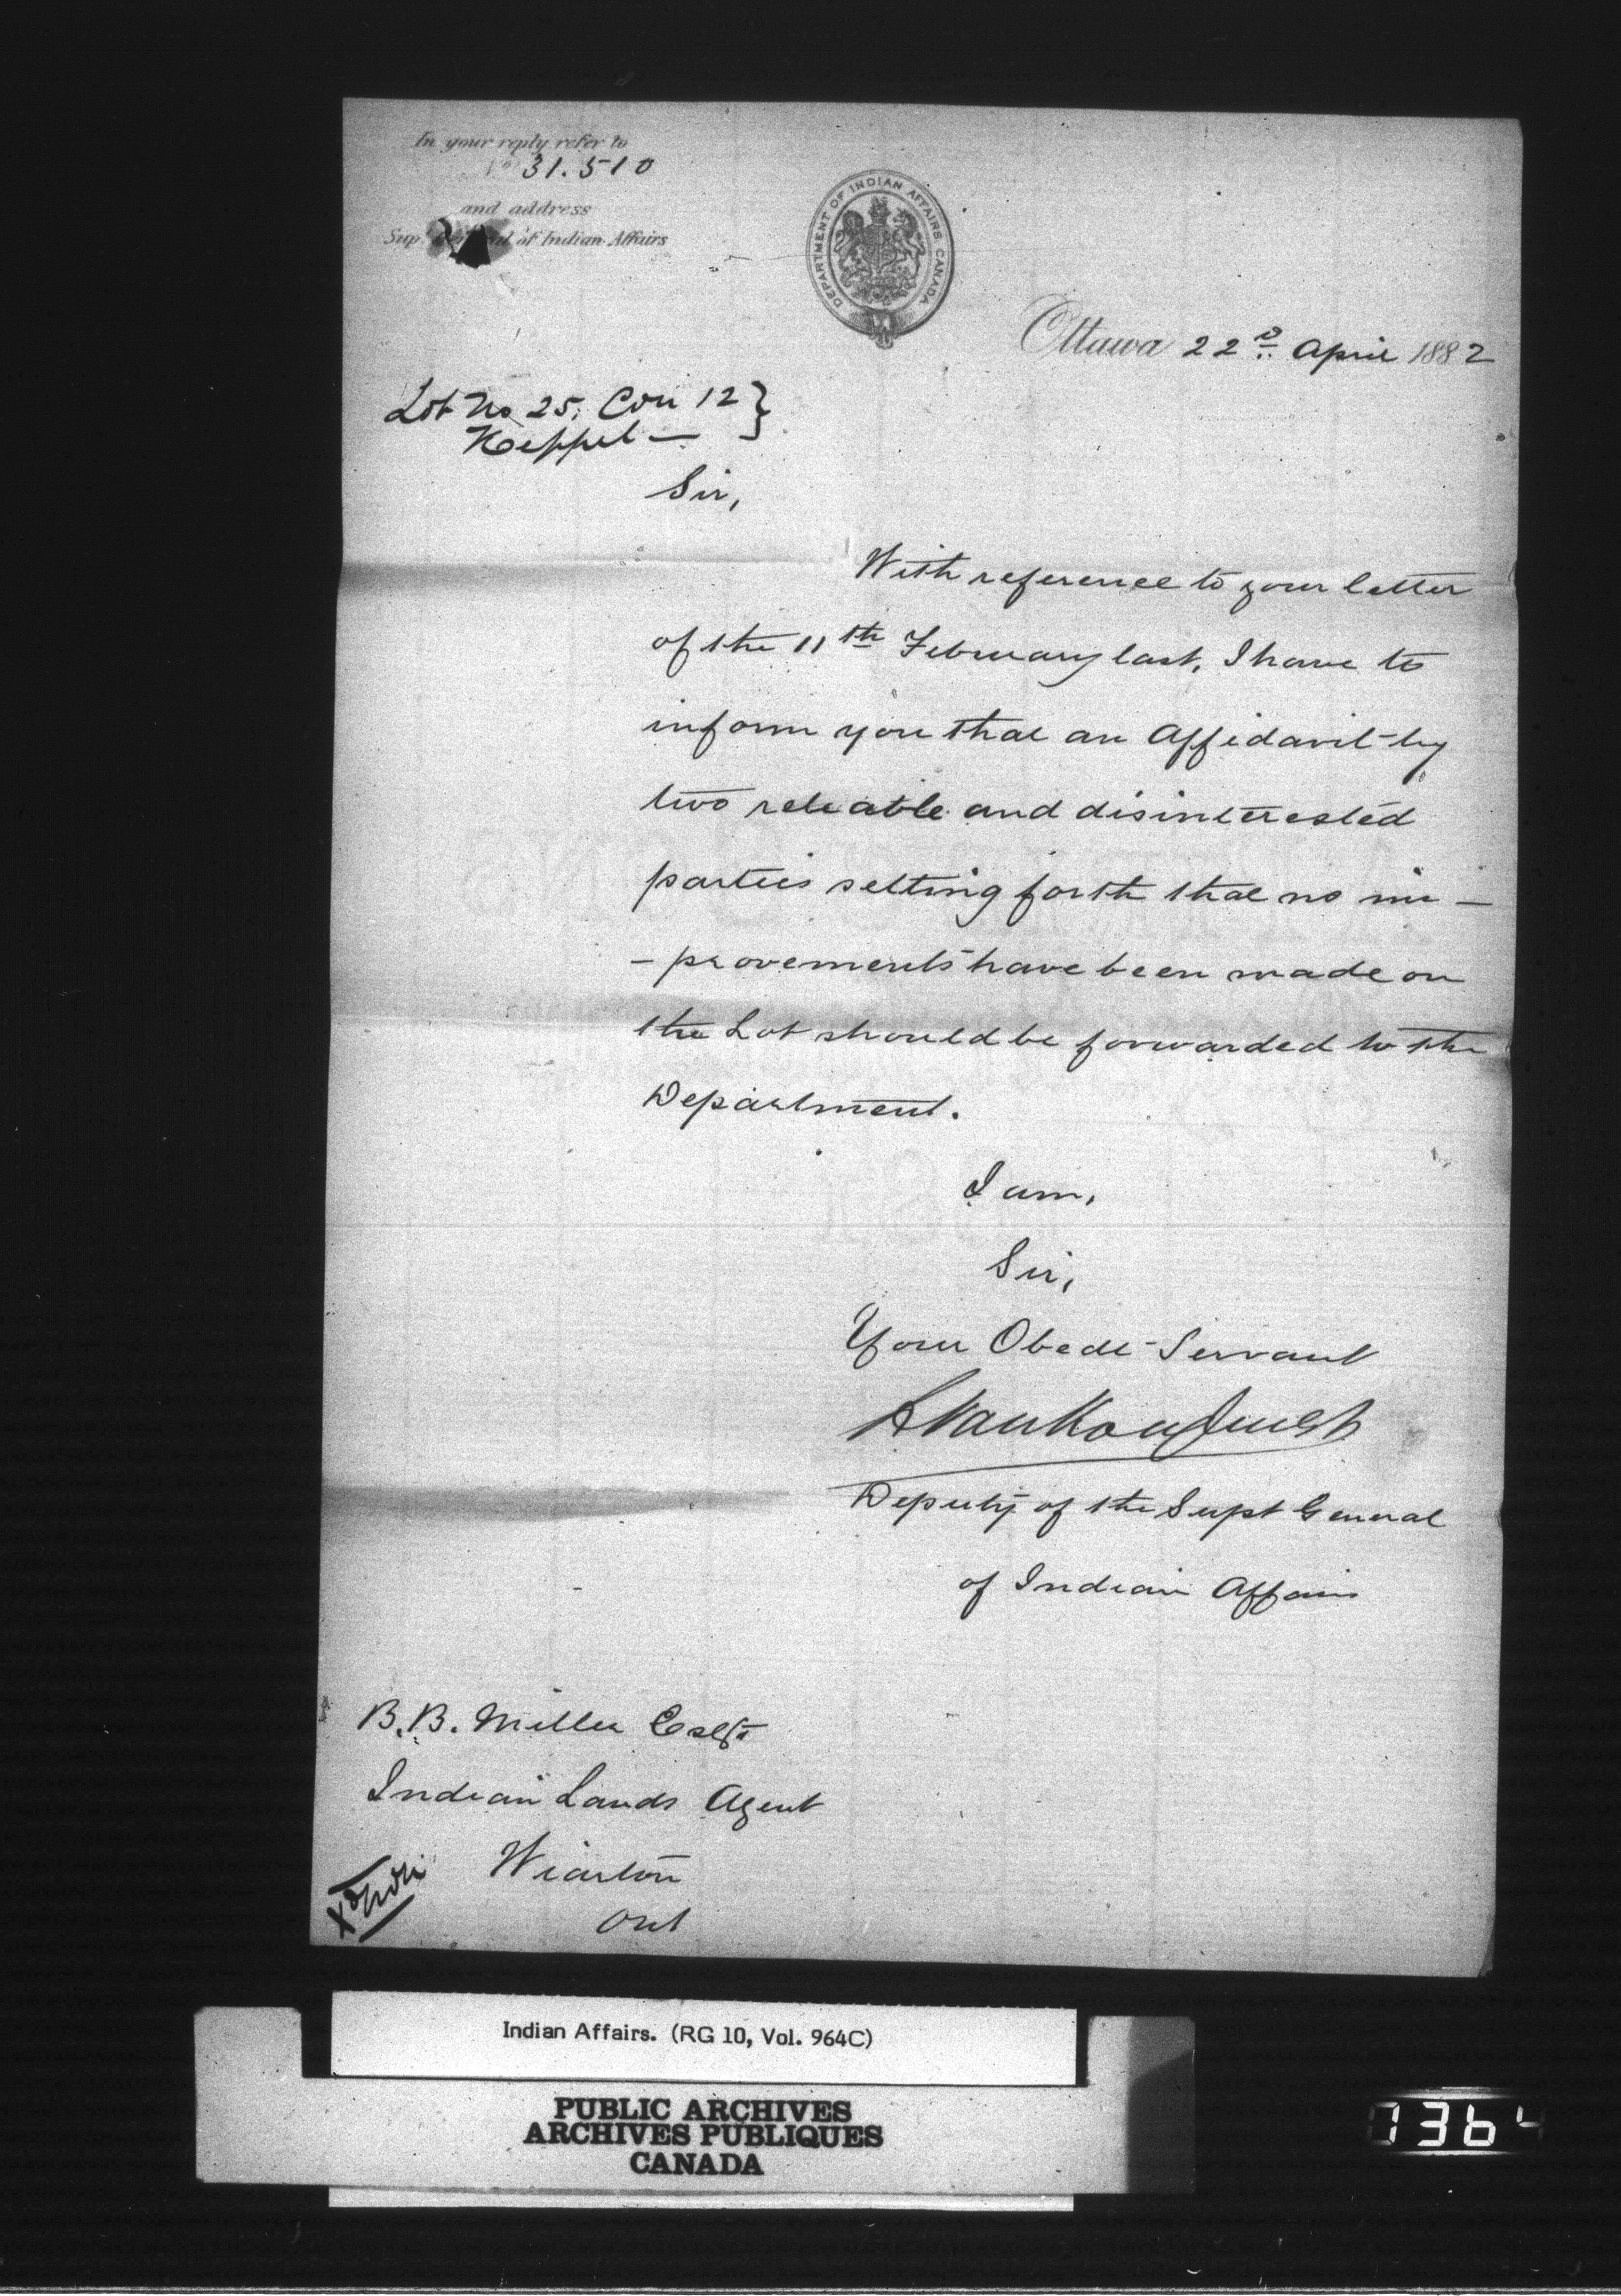 In your reply refer to
No 31.510
and address
Sup. of Indian Affairs
DEPARTMENT OF INDIAN AFFAIRS CANADA
Ottawa 22d April 1882
Lot No 25, Con 12 }
Keppel —
Sir,
With reference to your letter
of the 11th February last, I have to
inform you that an Affidavit by
two reliable and disinterested
parties setting forth that no im -
- provements have been made on
the Lot should be forwarded to the
Department.
I am,
Sir,
Your Obedt Servant
L VanKoughnet
Deputy of the Supt General
of Indian Affairs
B. B. Miller Esqr
Indian Lands Agent
Wiarton
Ont
Indian Affairs. (RG 10, Vol. 964C)
PUBLIC ARCHIVES
ARCHIVES PUBLIQUES
CANADA
1364